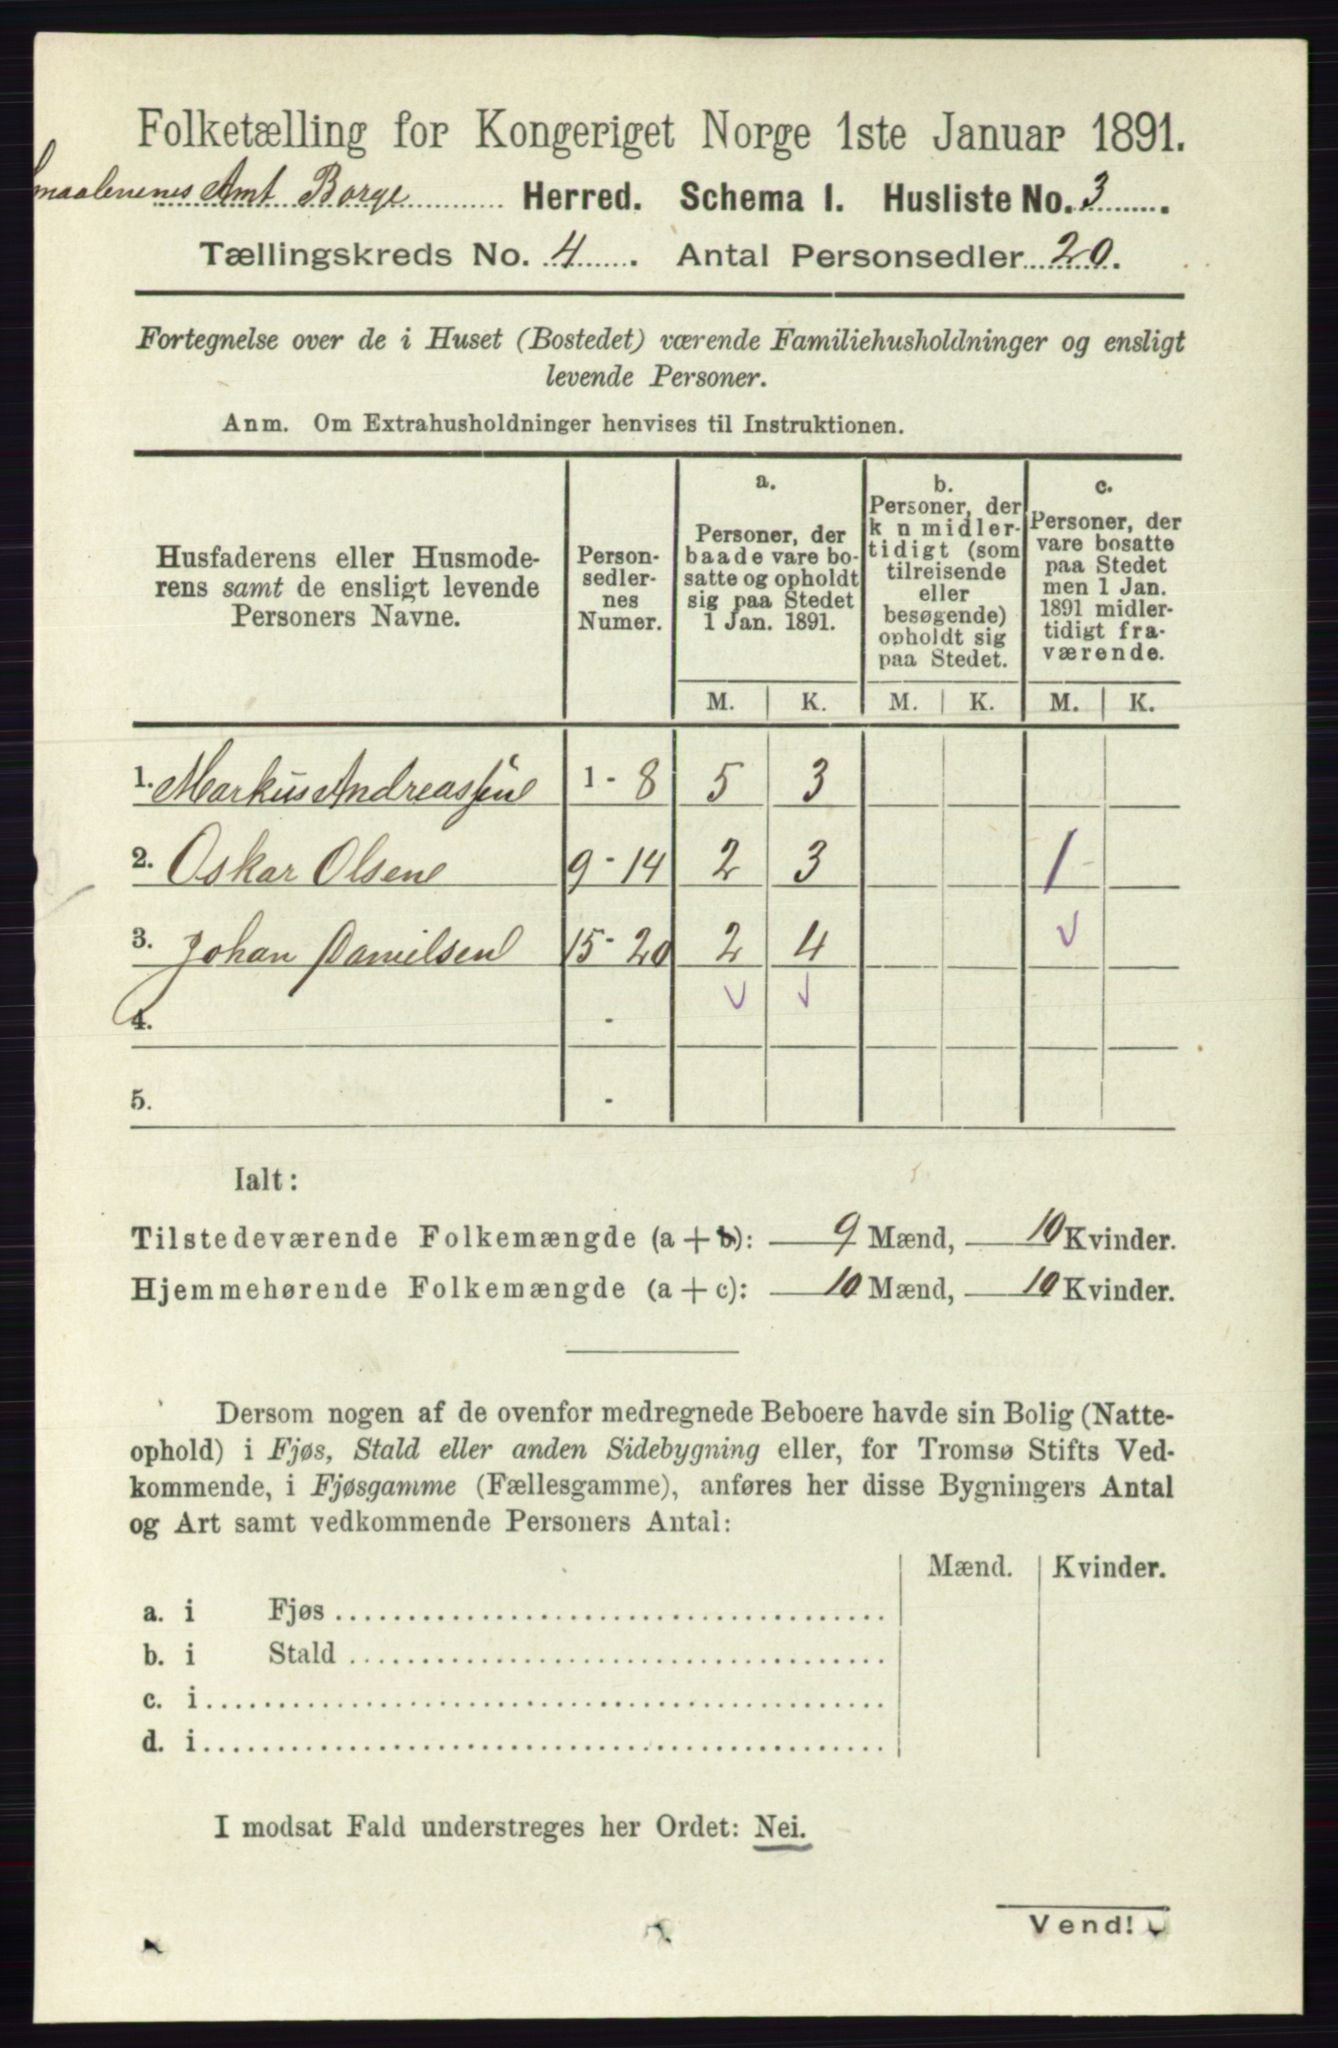 Folketælling for Kongeriget Norge 1ste Januar 1891.
Smaalenenes Amt Borge Herred. Schema I. Husliste No. 3.
Tællingskreds No. 4. Antal Personsedler 20.
Fortegnelse over de i Huset (Bostedet) værende Familiehusholdninger og ensligt
levende Personer.
Anm. Om Extrahusholdninger henvises til Instruktionen.
Husfaderens eller Husmode-
rens samt de ensligt levende
Personers Navne.
Person-
sedler-
nes
Numer.
a.
Personer, der
baade vare bo-
satte og opholdt
sig paa Stedet
1 Jan. 1891.
b.
Personer, der
k n midler-
tidigt (som
tilreisende
eller
besøgende)
opholdt sig
paa Stedet.
c.
Personer, der
vare bosatte
paa Stedet
men 1 Jan.
1891 midler-
tidigt fra-
værende.
M. K. M. K. M. K.
1. Markus Andreassen 1 - 8 5 3
2. Oskar Olsen 9 - 14 2 3 1
3. Johan Danielsen 15 - 20 2 4
4. -
5. -
Ialt:
Tilstedeværende Folkemængde (a + b): 9 Mænd, 10 Kvinder.
Hjemmehørende Folkemængde (a + c): 10 Mænd, 10 Kvinder.
Dersom nogen af de ovenfor medregnede Beboere havde sin Bolig (Natte-
ophold) i Fjøs, Stald eller anden Sidebygning eller, for Tromsø Stifts Ved-
kommende, i Fjøsgamme (Fællesgamme), anføres her disse Bygningers Antal
og Art samt vedkommende Personers Antal:
Mænd. Kvinder.
a. i Fjøs
b. i Stald
c. i
d. i
I modsat Fald understreges her Ordet: Nei.
Vend!